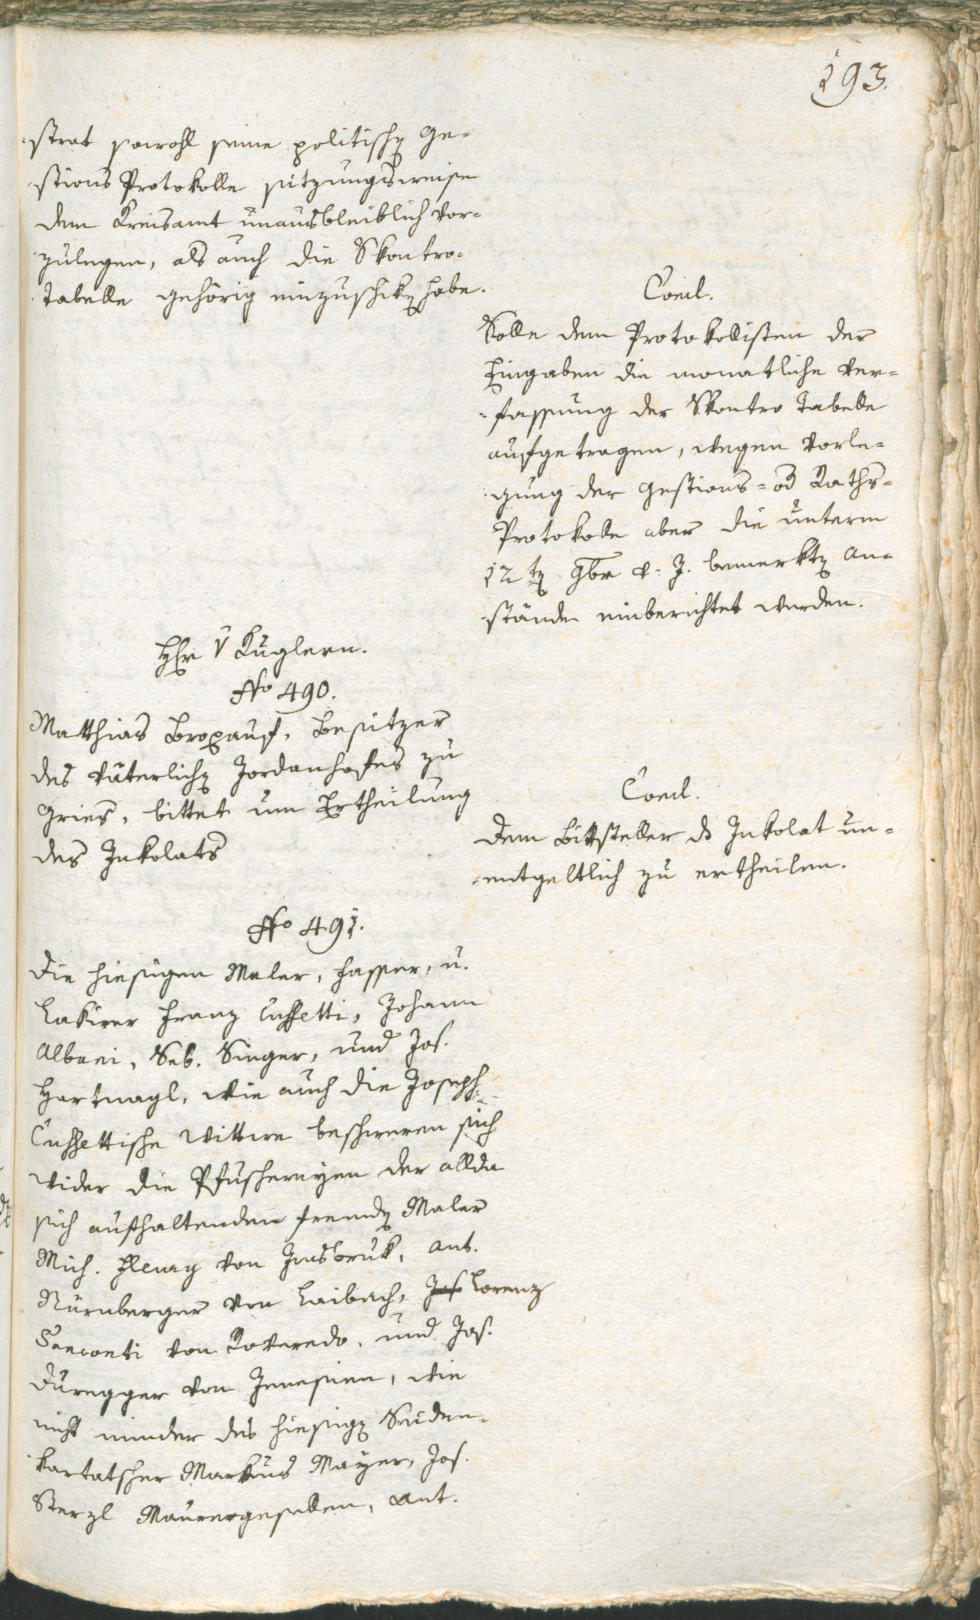 193.
strat sowohl seine politischen Ge-
stions Protokolle sitzungsweise
dem Kreisamt unausbleiblich vor-
zulegen, als auch die Skontro-
tabelle gehörig einzuschiken habe.
Concl.
Solle dem Protokollisten der
Eingaben die monatliche Ver-
fassung der Skontro Tabelle
aufgetragen, wegen Vorle-
gung der Gestions- od Raths-
Protokolle aber die unterm
12ten 9br v. J. bemerkten An-
stände einberichtet werden.
Hr v Kuglern.
No 490.
Matthias Broxauf, Besitzer
des väterlichen Jordanhofes zu
Gries, bittet um Ertheilung
des Inkolats
Concl.
Dem Bittsteller ds Inkolat un-
entgeltlich zu ertheilen.
No 491.
Die hiesigen Maler, Fasser, u.
Lakirer Franz Cussetti, Johann
Albani, Seb. Singer, und Jos.
Hartnagl, wie auch die Joseph
Cussettische Wittwe beschweren sich
wider die Pfuschereyen der allda
sich aufhaltenden fremden Maler
Mich. von Insbruk, Ant.
Nürnberger von Laibach, Jos Lorenz
Sanconti von Roveredo, und Jos.
Duregger von Jenesien, wie
nicht minder des hiesigen Seiden-
kartatscher Markus Mayer, Jos.
Sterzl Maurergesellen, Ant.